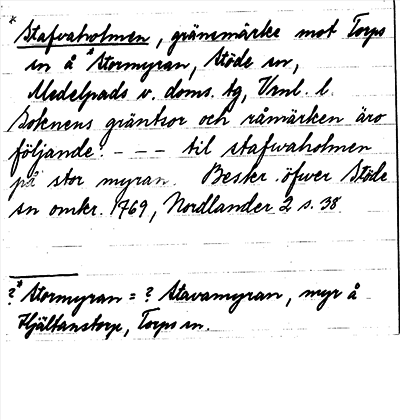 * Stafvaholmen, gränsmärke mot Torps
sn å *Stormyran, Stöde sn,
Medelpads v. doms. tg, Vrnl. l.
Soknens gräntsor och råmärken äro
följande: - - - til stafwaholmen
på stor myran. Beskr. öfwer Stöde
sn omkr. 1769, Nordlander 2 s. 38.
?* Stormyran = ? Stavamyran, myr å
Hjältanstorp, Torps sn.